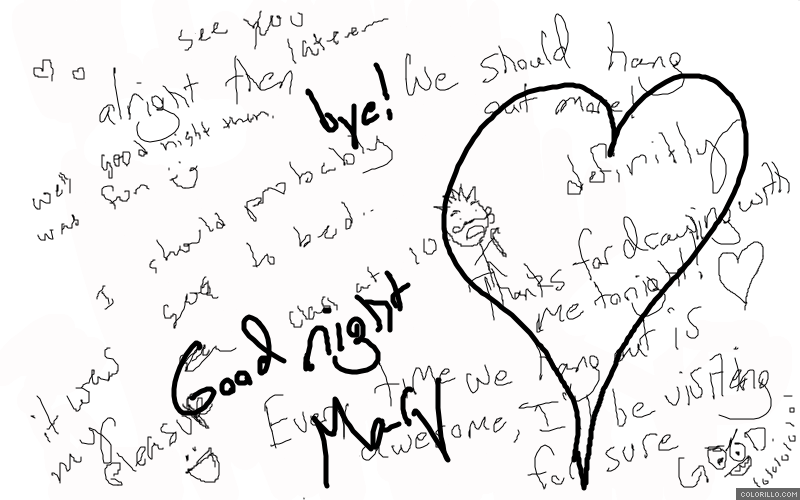 see you
lateerr
alright then
bye!
We should hang
out more!!
good night then.
well
was fun
definitly
I should probably
goo to bed..
class at 10
Thanks for drawing with
me tonight!
Good night
Mary
it was
my pleasure
Every time we hang out is
awesome, I'll be visiting
for sure
lolololololol
COLORILLO.COM